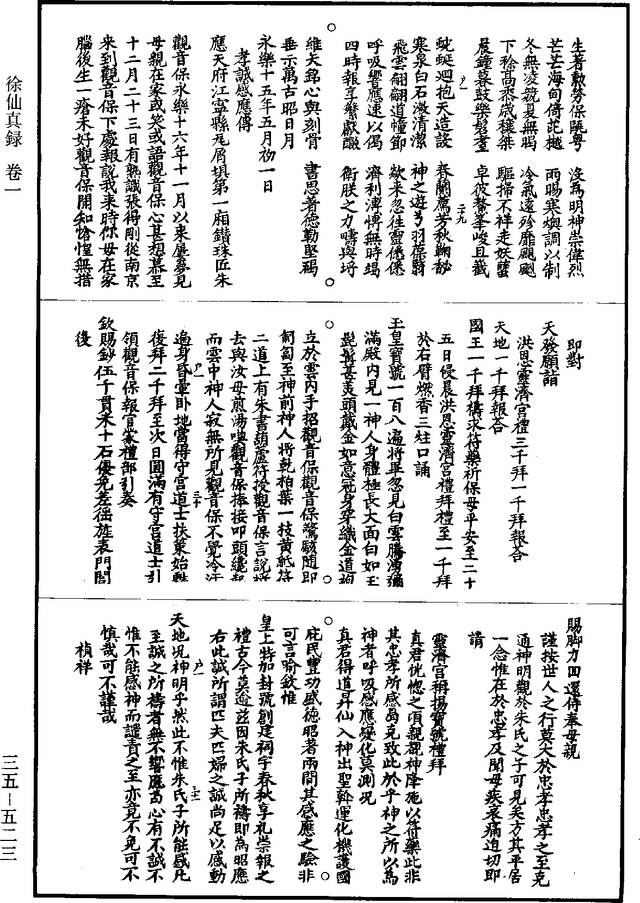 徐仙真録 卷一
生著勲勞保晚粤 沒為明神崇偉烈
芒芒海甸倚茫樾 雨暘寒燠調以制
冬無凌兢夏無暍 冷氣遠殄靡颶颲
下稔高柔歳穰桀 驅掃不祥走妖孽
晨鐘暮鼓樂髣 卓彼鰲峯峻且巀
蜿蜒迴抱天造設 春蘭薦芳秋鞠馝
寒泉白石激清潔 神之遊兮羽保翳
飛雲翩翩道幢節 欻來忽往靈僡僡
呼吸響應速以偈 濟利溥愽無時竭
四時報享繁獻醊 衛朕之力疇與埓
維文銘心與刻骨 書思著徳勒堅碣
垂示萬古昭日月
永樂十五年五月初一日
孝誠感應傳
應天府江寧縣瓦屑壩第一廂鑽珠匠朱
觀音保永樂十六年十一月以來屢夢見
母親在家或笑或語觀音保心甚想慕至
十二月二十三日有熟識張得剛從南京
來到觀音保下處報說我來時你母在家
腦後生一瘡未好觀音保聞知愴惶無措
即對
天發願詣
洪恩靈濟宫禮三千拜一千拜報荅
天地一千拜報荅
國王一千拜禱求符藥祈保母平安至二十
五日侵晨洪恩靈濟宫禮拜禮至一千拜
於右臂燃香三炷口誦
玉皇寶號一百八遍將畢忽見白雲騰湧瀰
滿殿內見一神人身體極長大面白如玉
髭髯甚美頭戴金如意冠身穿織金道袍
立於雲內手招觀音保觀音保驚駭隨即
匍匐至神前神人將乾柏葉一枝黄紙符
二道上有朱書葫蘆符授觀音保言說將
去與汝母煎湯喫觀音保捧接叩頭纔起
而雲中神人寂無所見觀音保不覺冷汗
遍身昏暈卧地當得守宫道士扶策始甦
復拜二千拜至次日圓滿有守宫道士引
領觀音保報官蒙禮部引奏
欽賜鈔伍千貫米十石優免差徭旌表門閭
後
賜脚力回還侍奉母親
謹按世人之行莫大於忠孝忠孝之至克
通神明觀於朱氏之子可見矣方其平居
一念惟在於忠孝及聞母疾哀痛迫切即
請
靈濟宫稱揚寶號禮拜
真君恍惚之頃親覩神降施以符藥此非
其忠孝所感曷克致此於乎神之所以為
神者呼吸感應變化莫測况
真君得道昇仙入神出聖斡運化機護國
庇民豐功盛徳昭著兩間其感應之驗非
可言喻欽惟
皇上特加封號創建祠宇春秋享祀崇報之
禮古今莫逾兹因朱氏子所禱即為昭應
右此誠所謂匹夫匹婦之誠尚足以感動
天地况神明乎然此不惟朱氏子所能感凡
至誠之所禱者無不響應苟心有不誠不
惟不能感神而譴責之至亦竟不免可不
慎哉可不謹哉
禎祥
三五–五二三